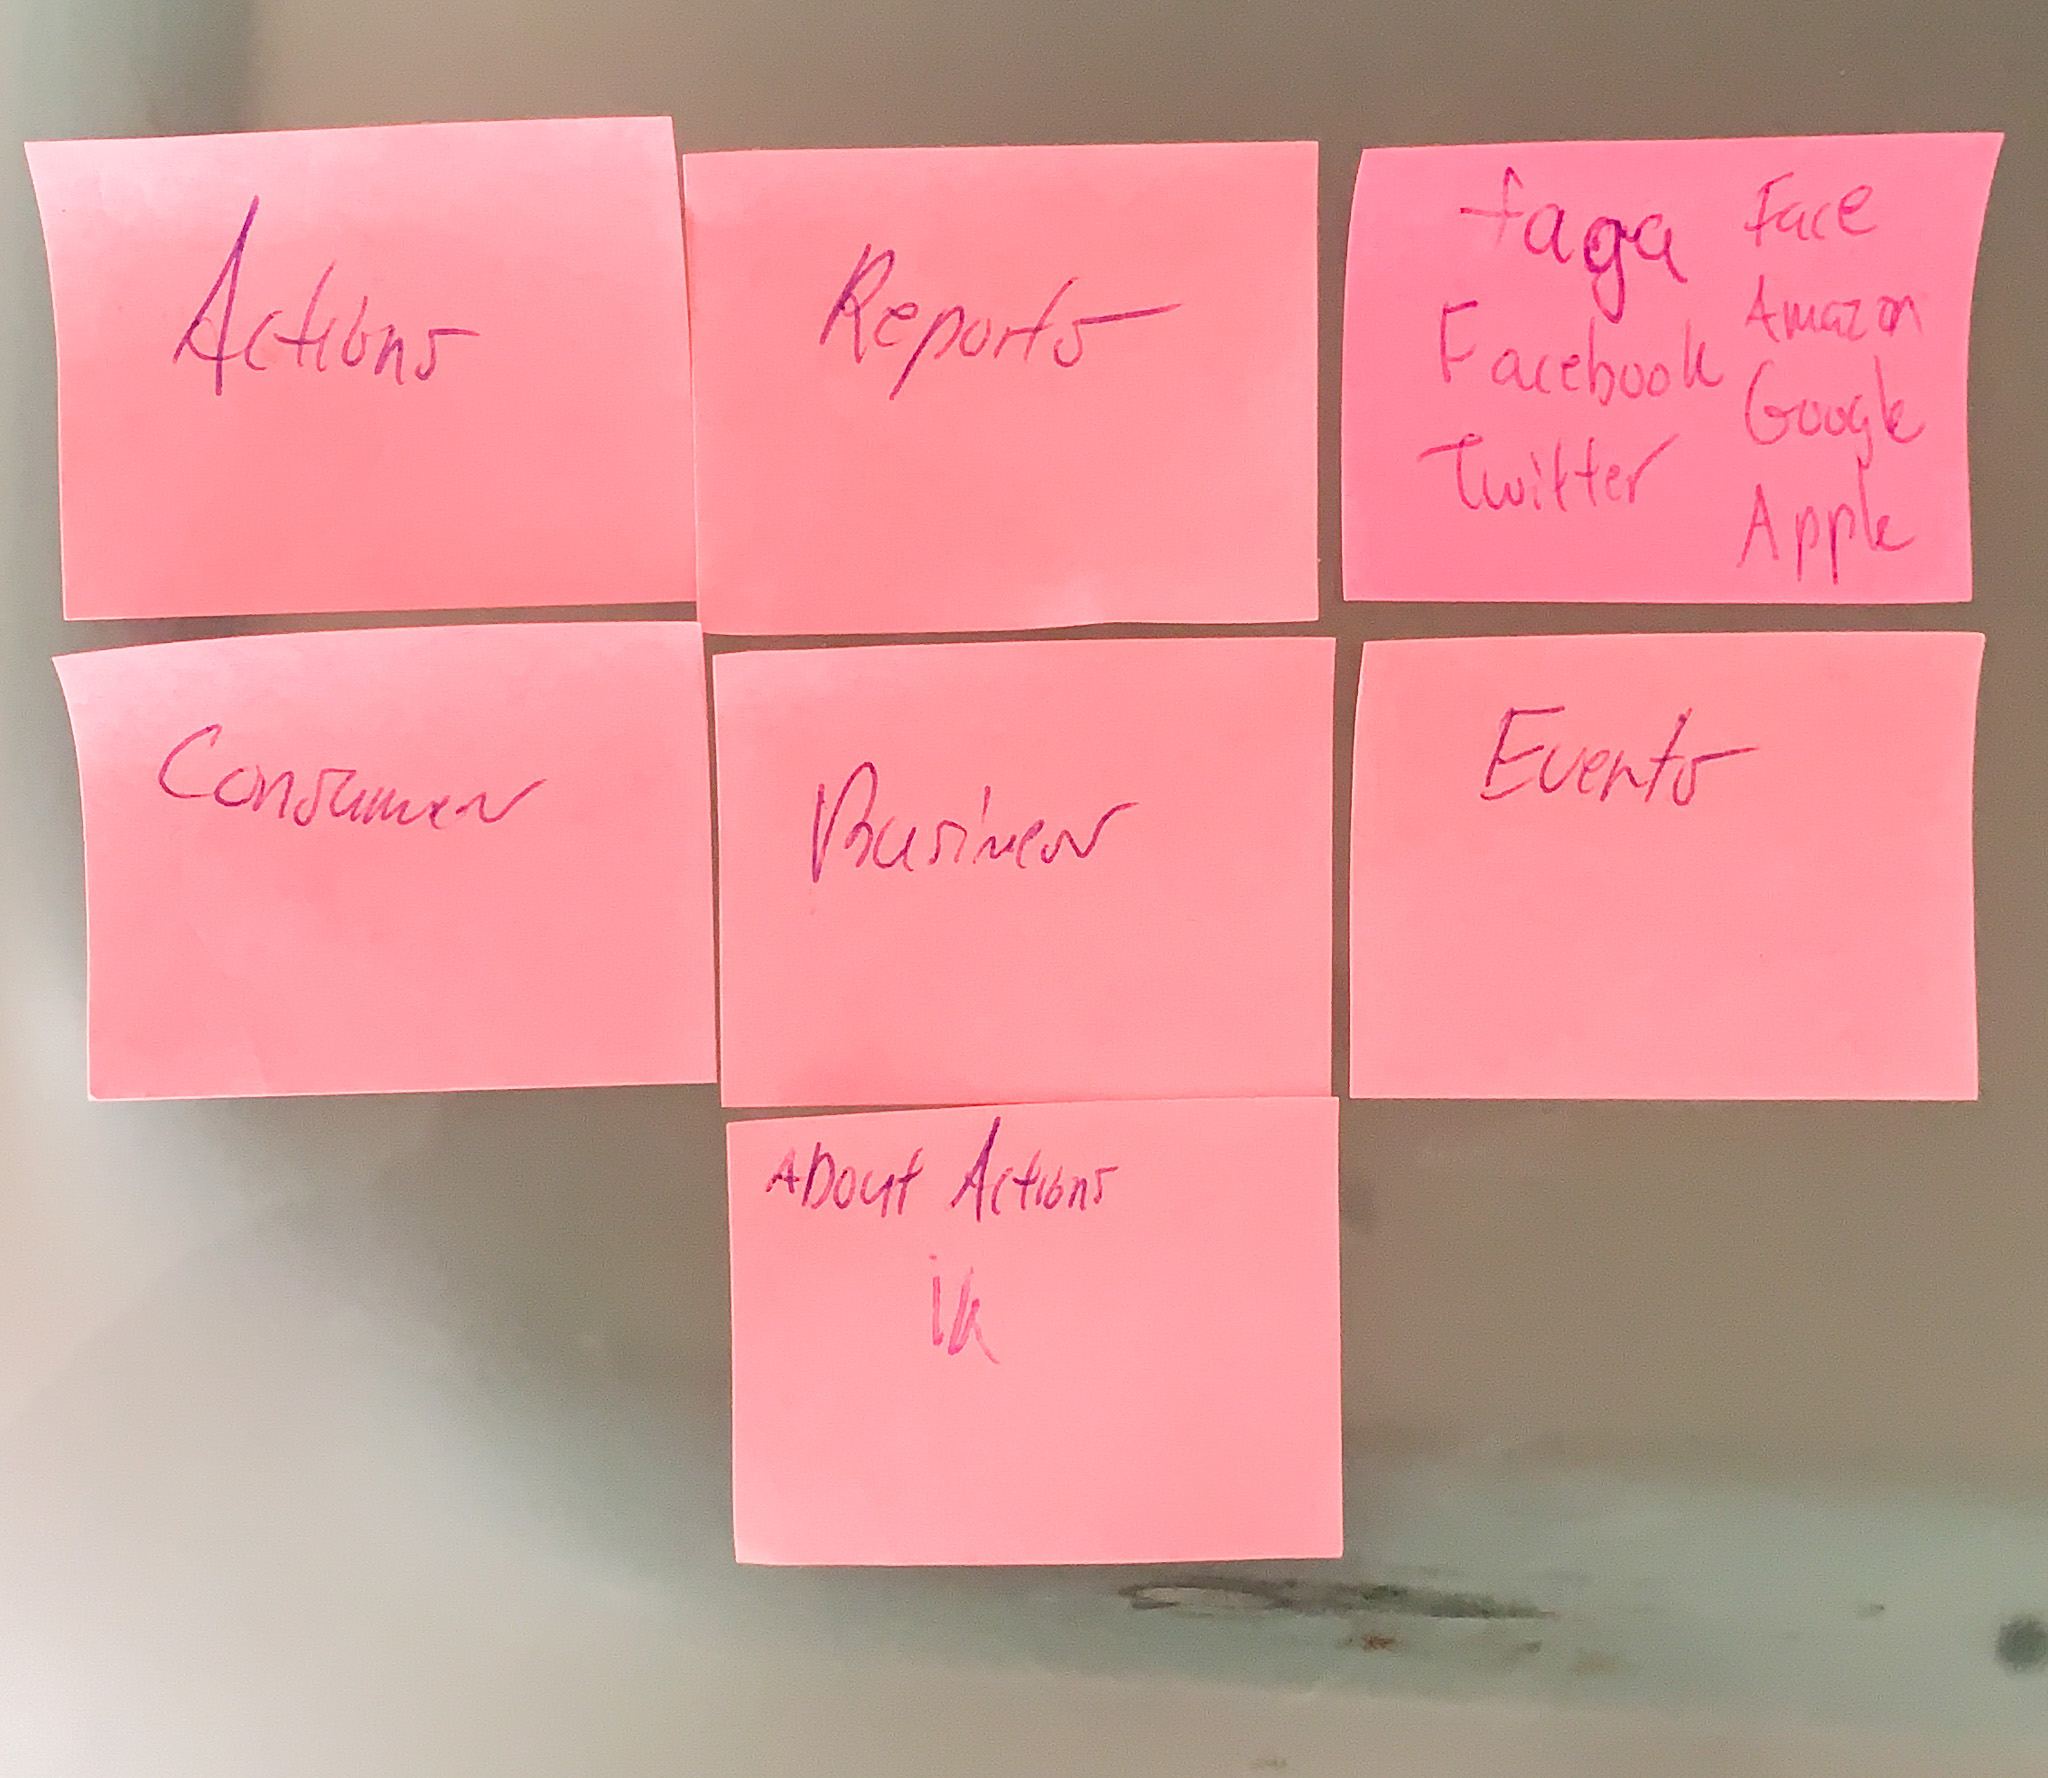 Actions
Reports
faga
Facebook
Twitter
Face
Amazon
Google
Apple
Consumer
Business
Events
About Actions